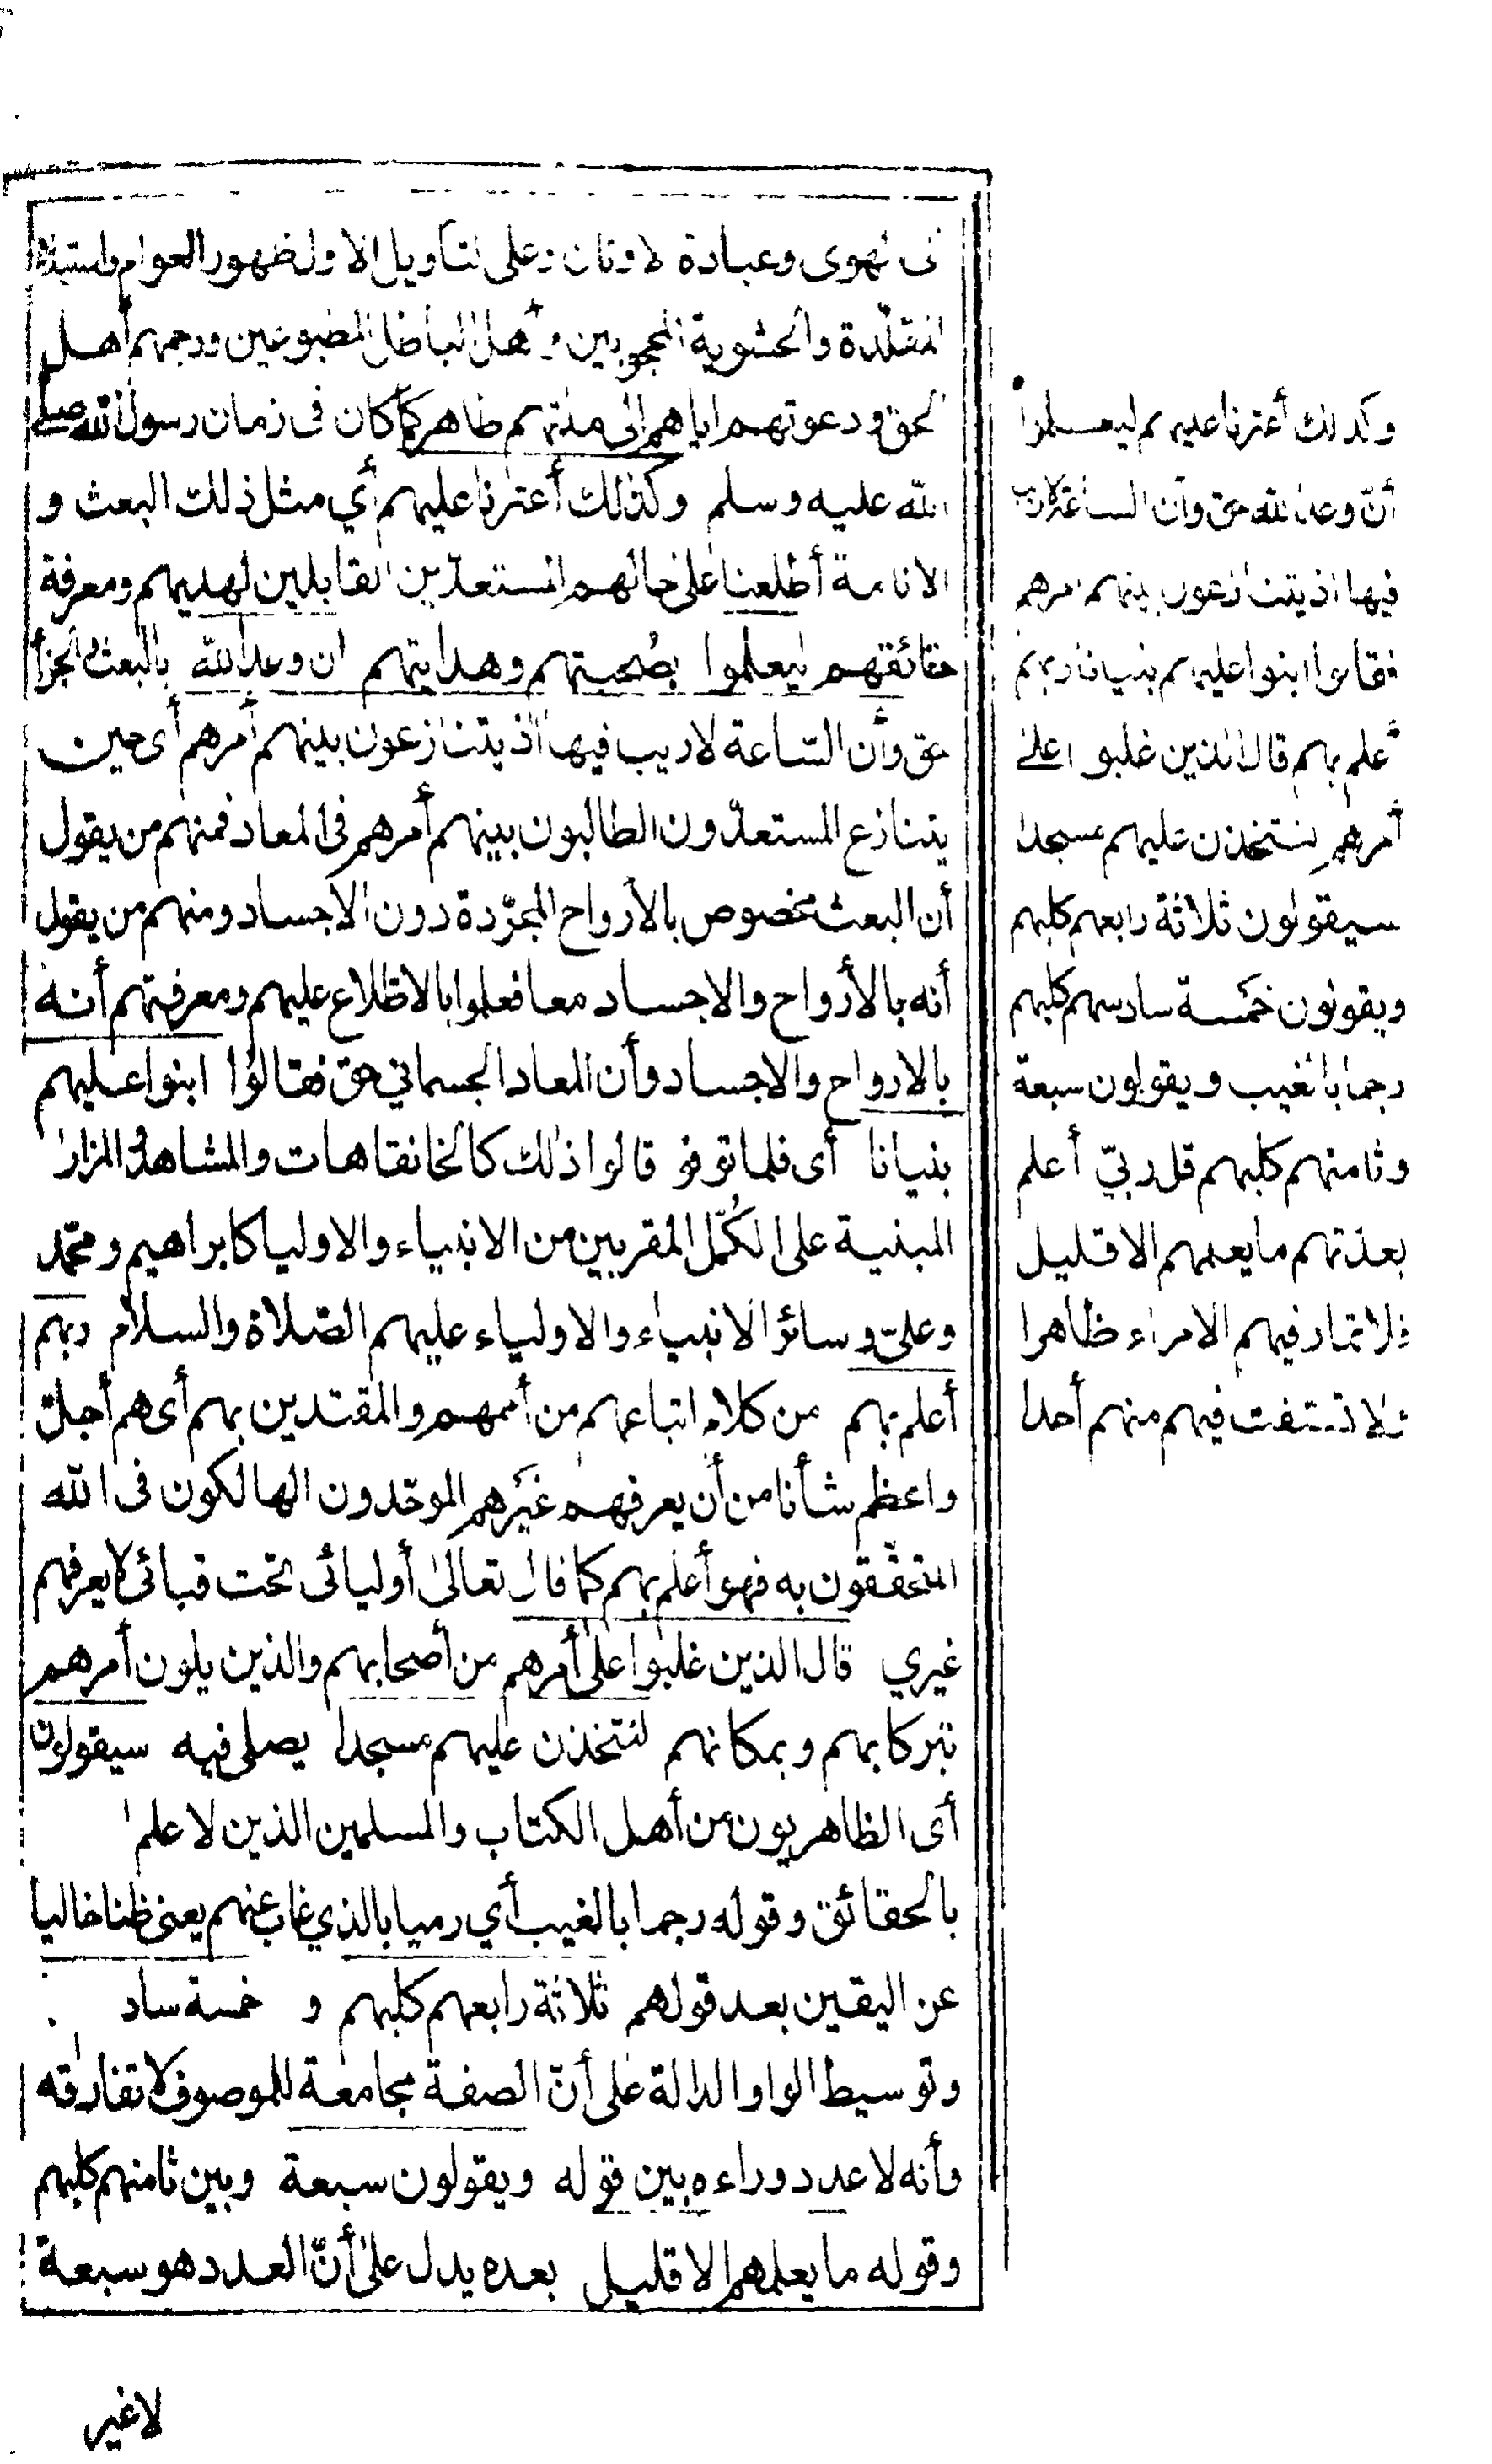 الهوى وعبادة الاوثان وعلى التأويل الاول ظهور العوام واستيلاء
المقلدة والحشوية المحجوبين وأهل الباطل المطبوعين ورجمهم أهل
الحق ودعوتهم اياهم الى ملتهم ظاهر كما كان فى زمان رسول الله صلى
الله عليه وسلم وكذلك أعثرنا عليهم أي مثل ذلك البعث و
الانامة أطلعنا على حالهم المستعدّين القابلين لهديهم ومعرفة
حقائقهم ليعلموا بصُحبتهم وهدايتهم ان وعد الله بالبعث والجزأ
حق وأن السّاعة لاريب فيها اذ يتنازعون بينهم أمرهم أى حين
يتنازع المستعدّون الطالبون بينهم أمرهم فى المعاد فمنهم من يقول
أن البعث مخصوص بالأرواح المجرّدة دون الاجساد ومنهم من يقول
أنه بالأرواح والاجساد معا فعلموا بالاطلاع عليهم ومعرفتهم أنه
بالارواح والاجساد وأن المعاد الجسماني حق فقالوا ابنوا عليهم
بنيانا أى فلما توفو قالوا ذلك كالخانقاهات والمشاهد المزار
المبنية على الكُمّل المقربين من الانبياء والاوليا كابراهيم ومحمّد
وعلىّ وسائر الانبياء والاولياء عليهم الصّلاة والسلام ربهم
أعلم بهم من كلام اتباعهم من أممهم والمقتدين بهم أى هم أجلّ
واعظم شأنا من أن يعرفهم غيرهم الموحّدون الهالكون فى الله
المتحقّقون به فهو أعلم بهم كما قال تعالى أوليائى تحت قبائى لا يعرفهم
غيري قال الذين غلبوا على أمرهم من أصحابهم والذين يلون أمرهم
تبركا بهم وبمكانهم لنتخذن عليهم مسجدا يصلى فيه سيقولون
أى الظاهريون من أهل الكتاب والمسلمين الذين لا علم
بالحقائق وقوله رجما بالغيب أي رميا بالذي غاب عنهم يعنى ظنا خاليا
عن اليقين بعد قولهم ثلاثة رابعهم كلبهم و خمسة ساد
وتوسيط الواو الدالة على أنّ الصفة مجامعة للموصوف لا تفارقه
وأنه لا عدد وراءه بين قوله ويقولون سبعة وبين ثامنهم كلبهم
وقوله ما يعلمهم الا قليل بعده يدل على أنّ العدد هو سبعة
لا غير
وكذلك أعثرنا عليهم ليعلموا
أنّ وعد الله حق وأن الساعة لاريب
فيها اذ يتنازعون بينهم أمرهم
فقالوا ابنوا عليهم بنيانا ربهم
أعلم بهم قال الذين غلبوا على
أمرهم لنتخذن عليهم مسجدا
سيقولون ثلاثة رابعهم كلبهم
ويقولون خمسة سادسهم كلبهم
رجما بالغيب ويقولون سبعة
وثامنهم كلبهم قل ربيّ أعلم
بعدتهم ما يعلمهم الا قليل
فلا تمار فيهم الا مراء ظاهرا
ولا تستفت فيهم منهم أحدا